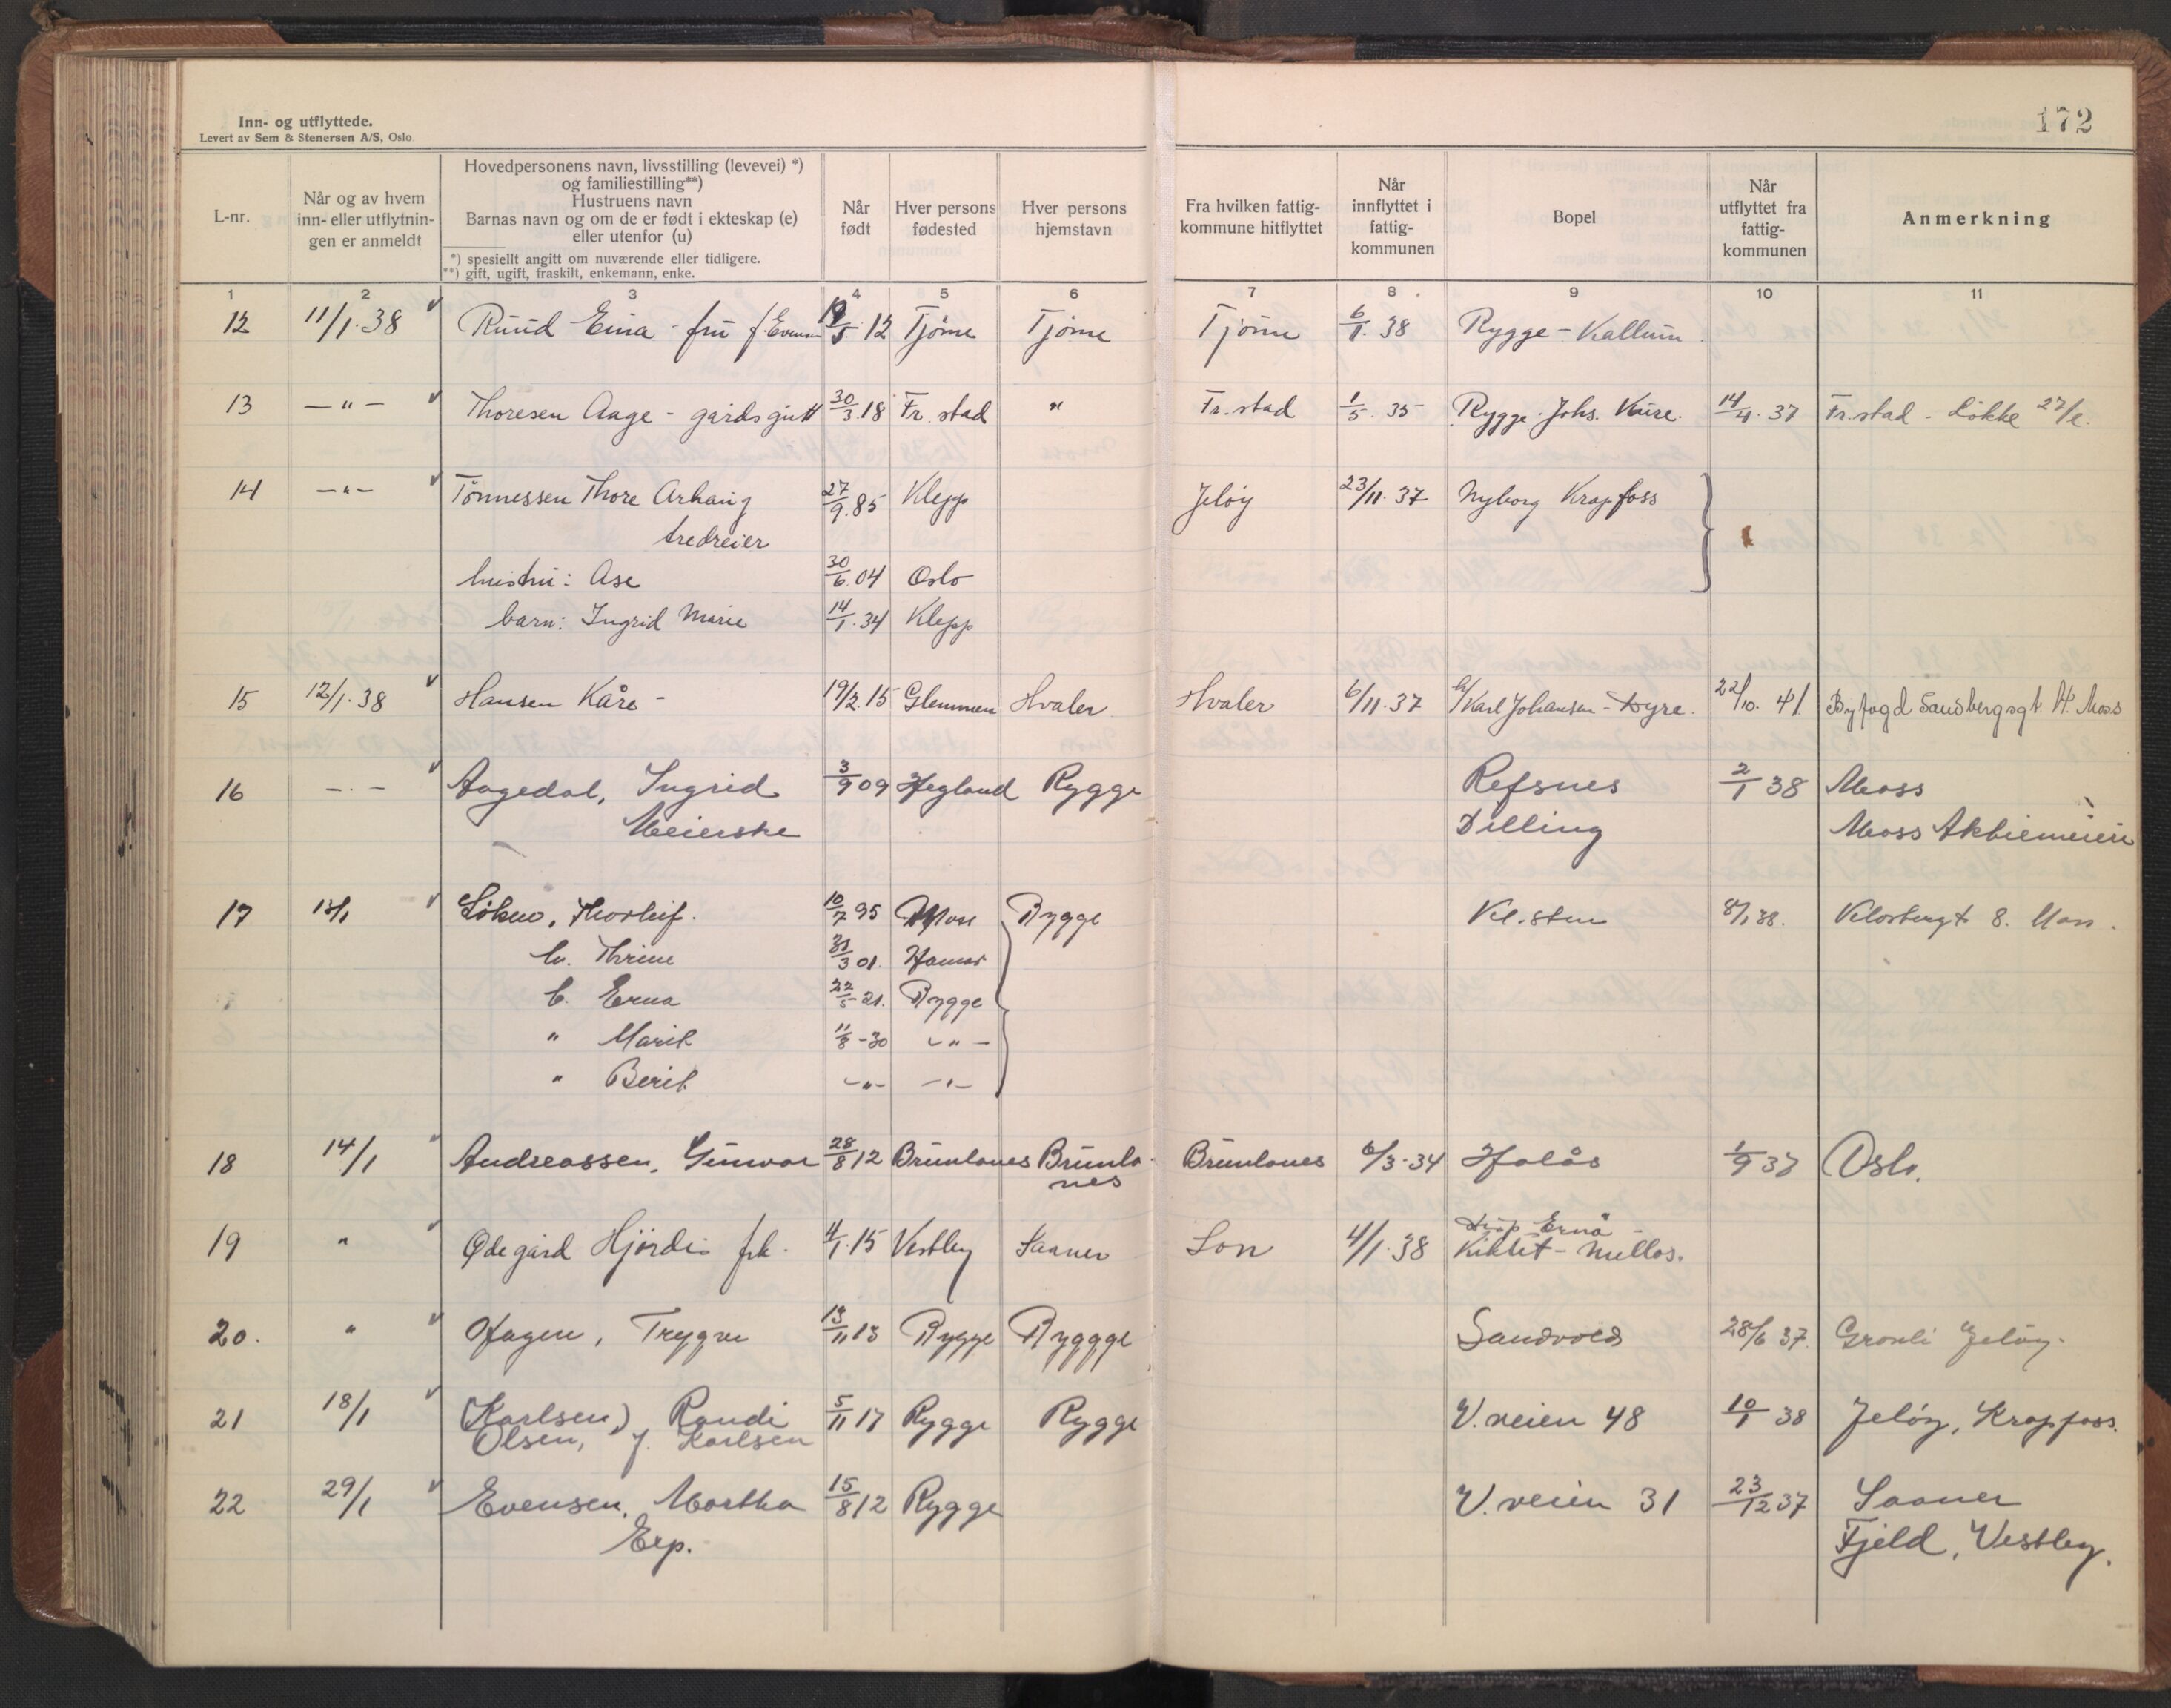 Inn- og utflyttede.
Levert av Sem & Stenersen A/S, Oslo.
172
L-nr.
Når og av hvem inn- eller utflytnin- gen er anmeldt
Hovedpersonens navn, livsstilling (levevei) *)
og familiestilling**)
Hustruens navn
Barnas navn og om de er født i ekteskap (e)
eller utenfor (u)
*) spesiellt angitt om nuværende eller tidligere.
**) gift, ugift, fraskilt, enkemann, enke.
Når født
Hver persons fødested
Hver persons hjemstavn
Fra hvilken fattig- kommune hitflyttet
Når innflyttet i fattig- kommunen
Bopel
Når utflyttet fra fattig- kommunen
Anmerkning
1 2 3 4 5 6 7 8 9 10 11
12 11/1.38 Ruud - fru f. Evensen /5.12 Tjöme Tjöme Tjöme 6/1.38 Rygge - Kallum
13 — " — Thoresen Aage - gårdsgutt 30/3.18 Fr.stad " Fr.stad 1/5.35 Rygge. Johs. Kure. 14/4.37 Fr.stad - Lökke
14 — " — Tönnessen Thore 27/9.85 Klepp Jelöy 23/11.37 Nyborg Krapfoss
tredreier
hustru: Ase 30/6.04 Oslo
barn: Ingrid Marie 14/1.34 Klepp
15 12/1.38 Hansen Kåre - 19/2.15 Glemmen Hvaler Hvaler 6/11.37 Karl Johansen - Dyre. 22/10.41 Byfogd Sandbergsgt. Moss
16 — " — Aagedal, Ingrid 3/9 09 Hegland Rygge Refsnes 2/1 38 Moss
Meierske Dilling Moss Aktiemeieri
17 13/1 Löken, Thorleif. 10/7 95 Moss Rygge Kl.sten 8/1 38. 8. Moss.
h. Thrine 31/3 01. Hamar
b. Erna 22/5 21. Rygge
" Marit 11/8-30 — " —
" Berit — " — — " —
18 14/1 Andreassen, Gunvor 28/8 12 Brunlanes Brunla-
nes Brunlanes 6/3-34 Halås 1/9 37 Oslo.
19 " Ödegård Hjördis frk. 4/1.15 Vestby Saaner Son 4/1.38 Erna
20. " Hagen, Trygve 13/11 13 Rygge Ryggge Sandvold 28/6 37. Gronli Jelöy.
21 18/1 (Karlsen) Randi 5/11 17 Rygge Rygge V.veien 48 10/1 38 Jelöy, Krapfoss.
Olsen, f. Karlsen
22 29/1 Evensen, Martha 15/8 12 Rygge V.veien 31 23/12 37 Saaner
Exp. Fjeld, Vestby.